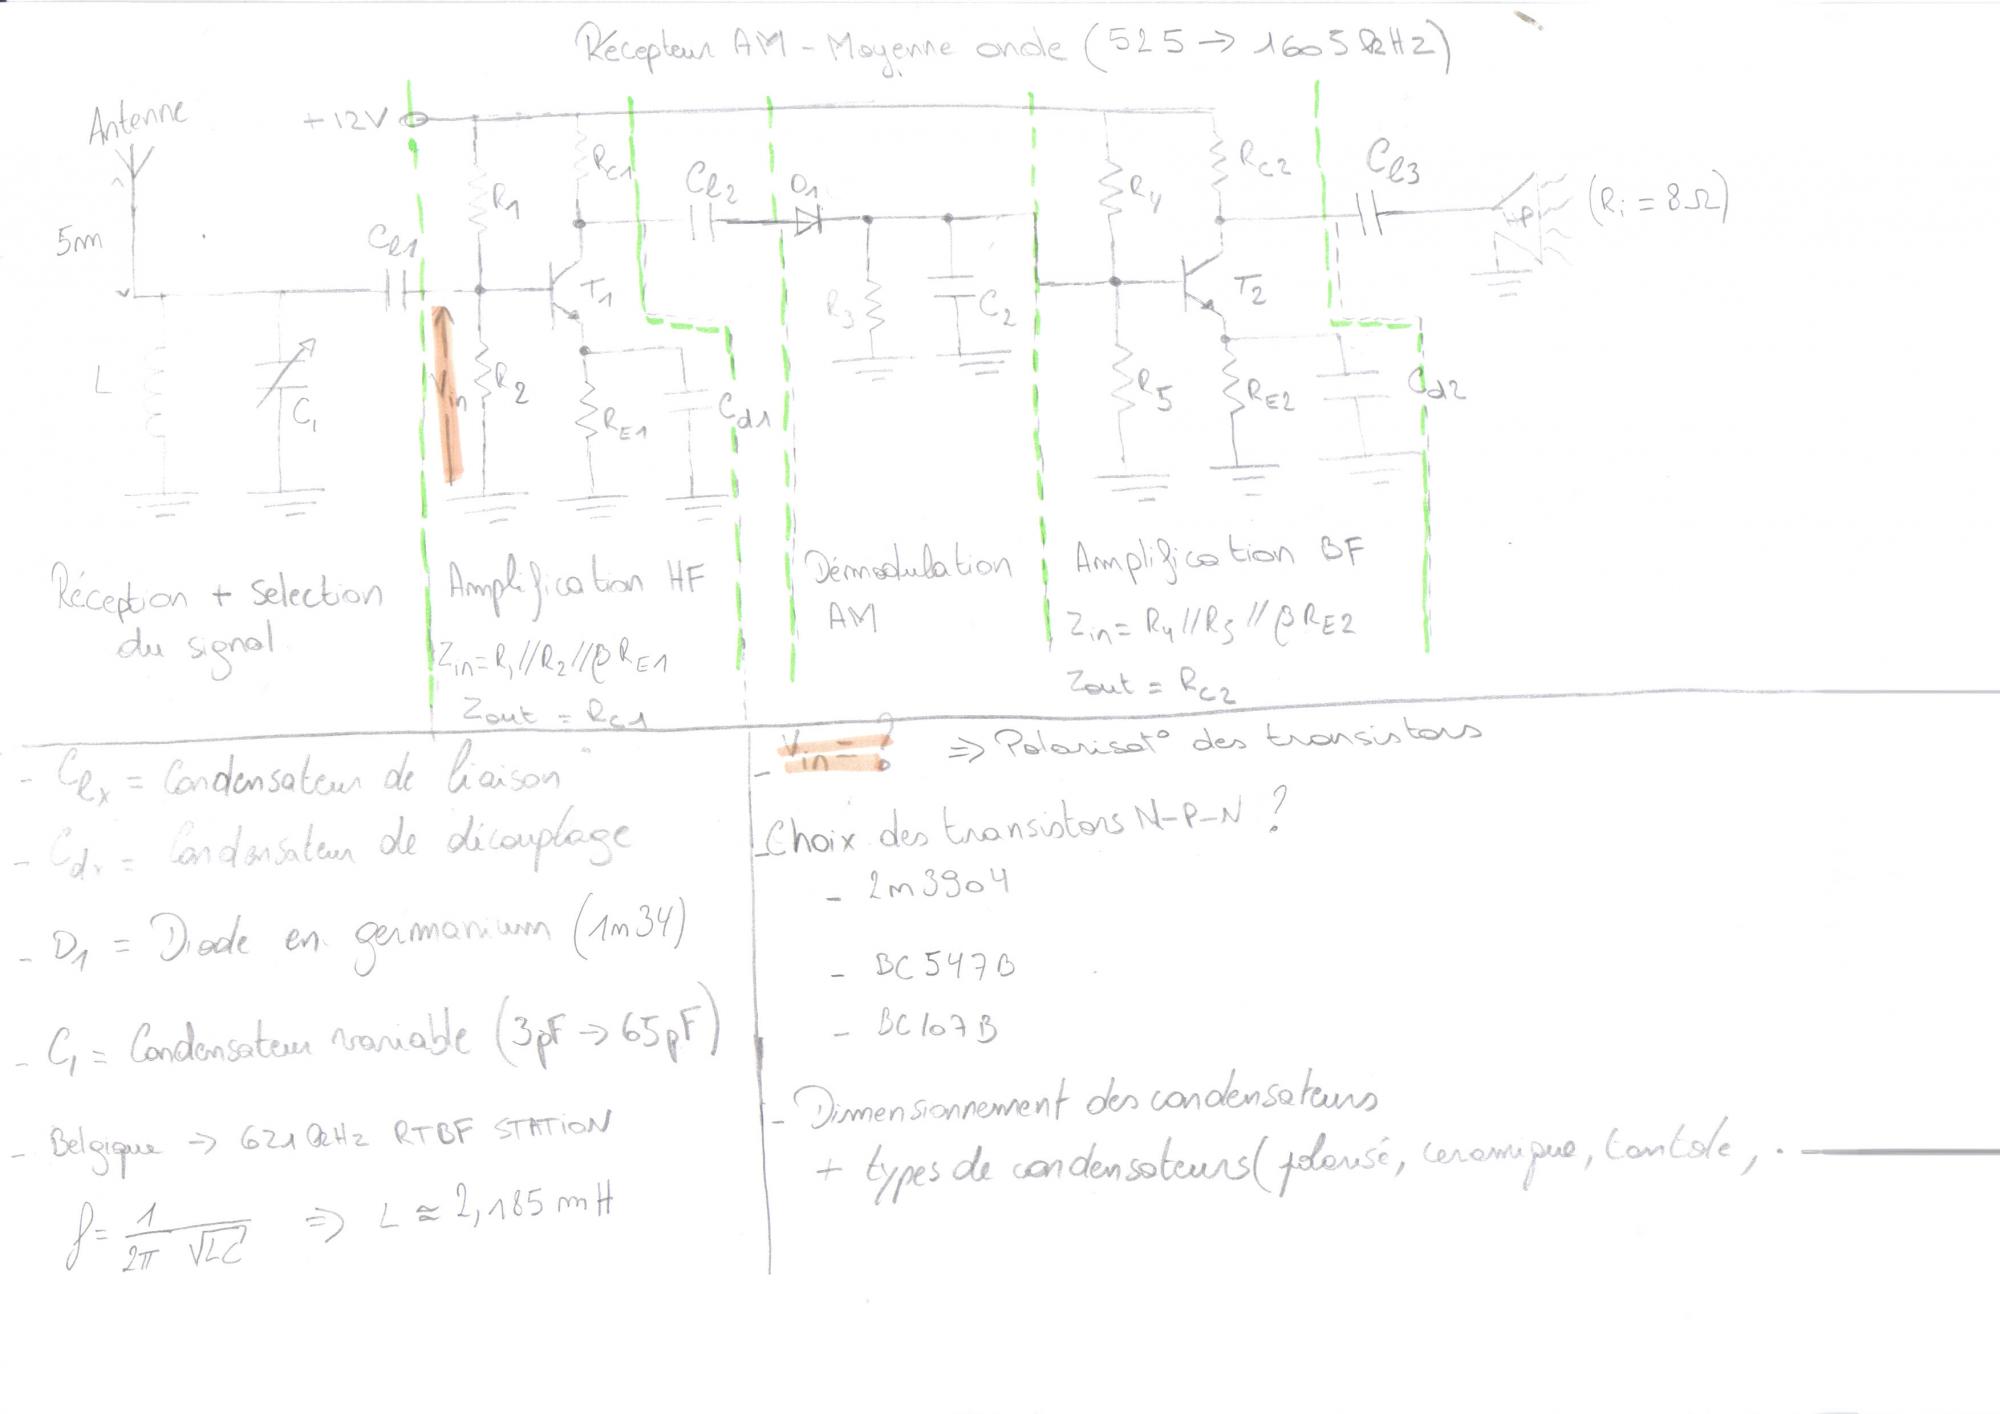 Récepteur AM - Moyenne onde (525 → 1605 kHz)
Antenne
+12V
5m
L
C1
Cℓ1
Vin
R1
R2
RC1
T1
RE1
Cd1
Cℓ2
D1
R3
C2
R4
R5
RC2
T2
RE2
Cd2
Cℓ3
HP
(Ri = 8Ω)
Réception + selection
du signal
Amplification HF
Zin = R1//R2//βRE1
Zout = RC1
Démodulation
AM
Amplification BF
Zin = R4//R5//βRE2
Zout = RC2
- Cℓx = Condensateur de liaison
- Cdx = Condensateur de découplage
- D1 = Diode en germanium (1n34)
- C1 = Condensateur variable (3pF → 65pF)
- Belgique → 621 kHz RTBF STATION
f = 1 / 2π √LC ⇒ L ≃ 2,185 mH
- Vin = ? ⇒ Polarisat° des transistors
- Choix des transistors N-P-N ?
- 2n3904
- BC547B
- BC107B
- Dimensionnement des condensateurs
+ types de condensateurs (polarisé, ceramique, tantale, .